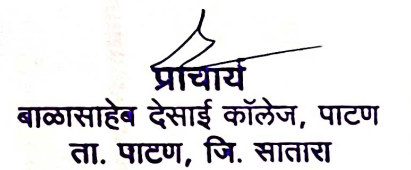 प्राचार्य
बाळासाहेब देसाई कॉलेज, पाटण
ता. पाटण, जि. सातारा